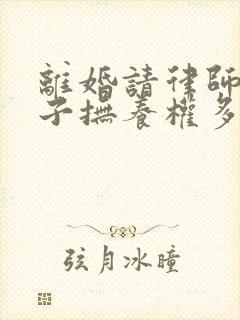 離婚請律師
子撫養權多
弦月冰瞳